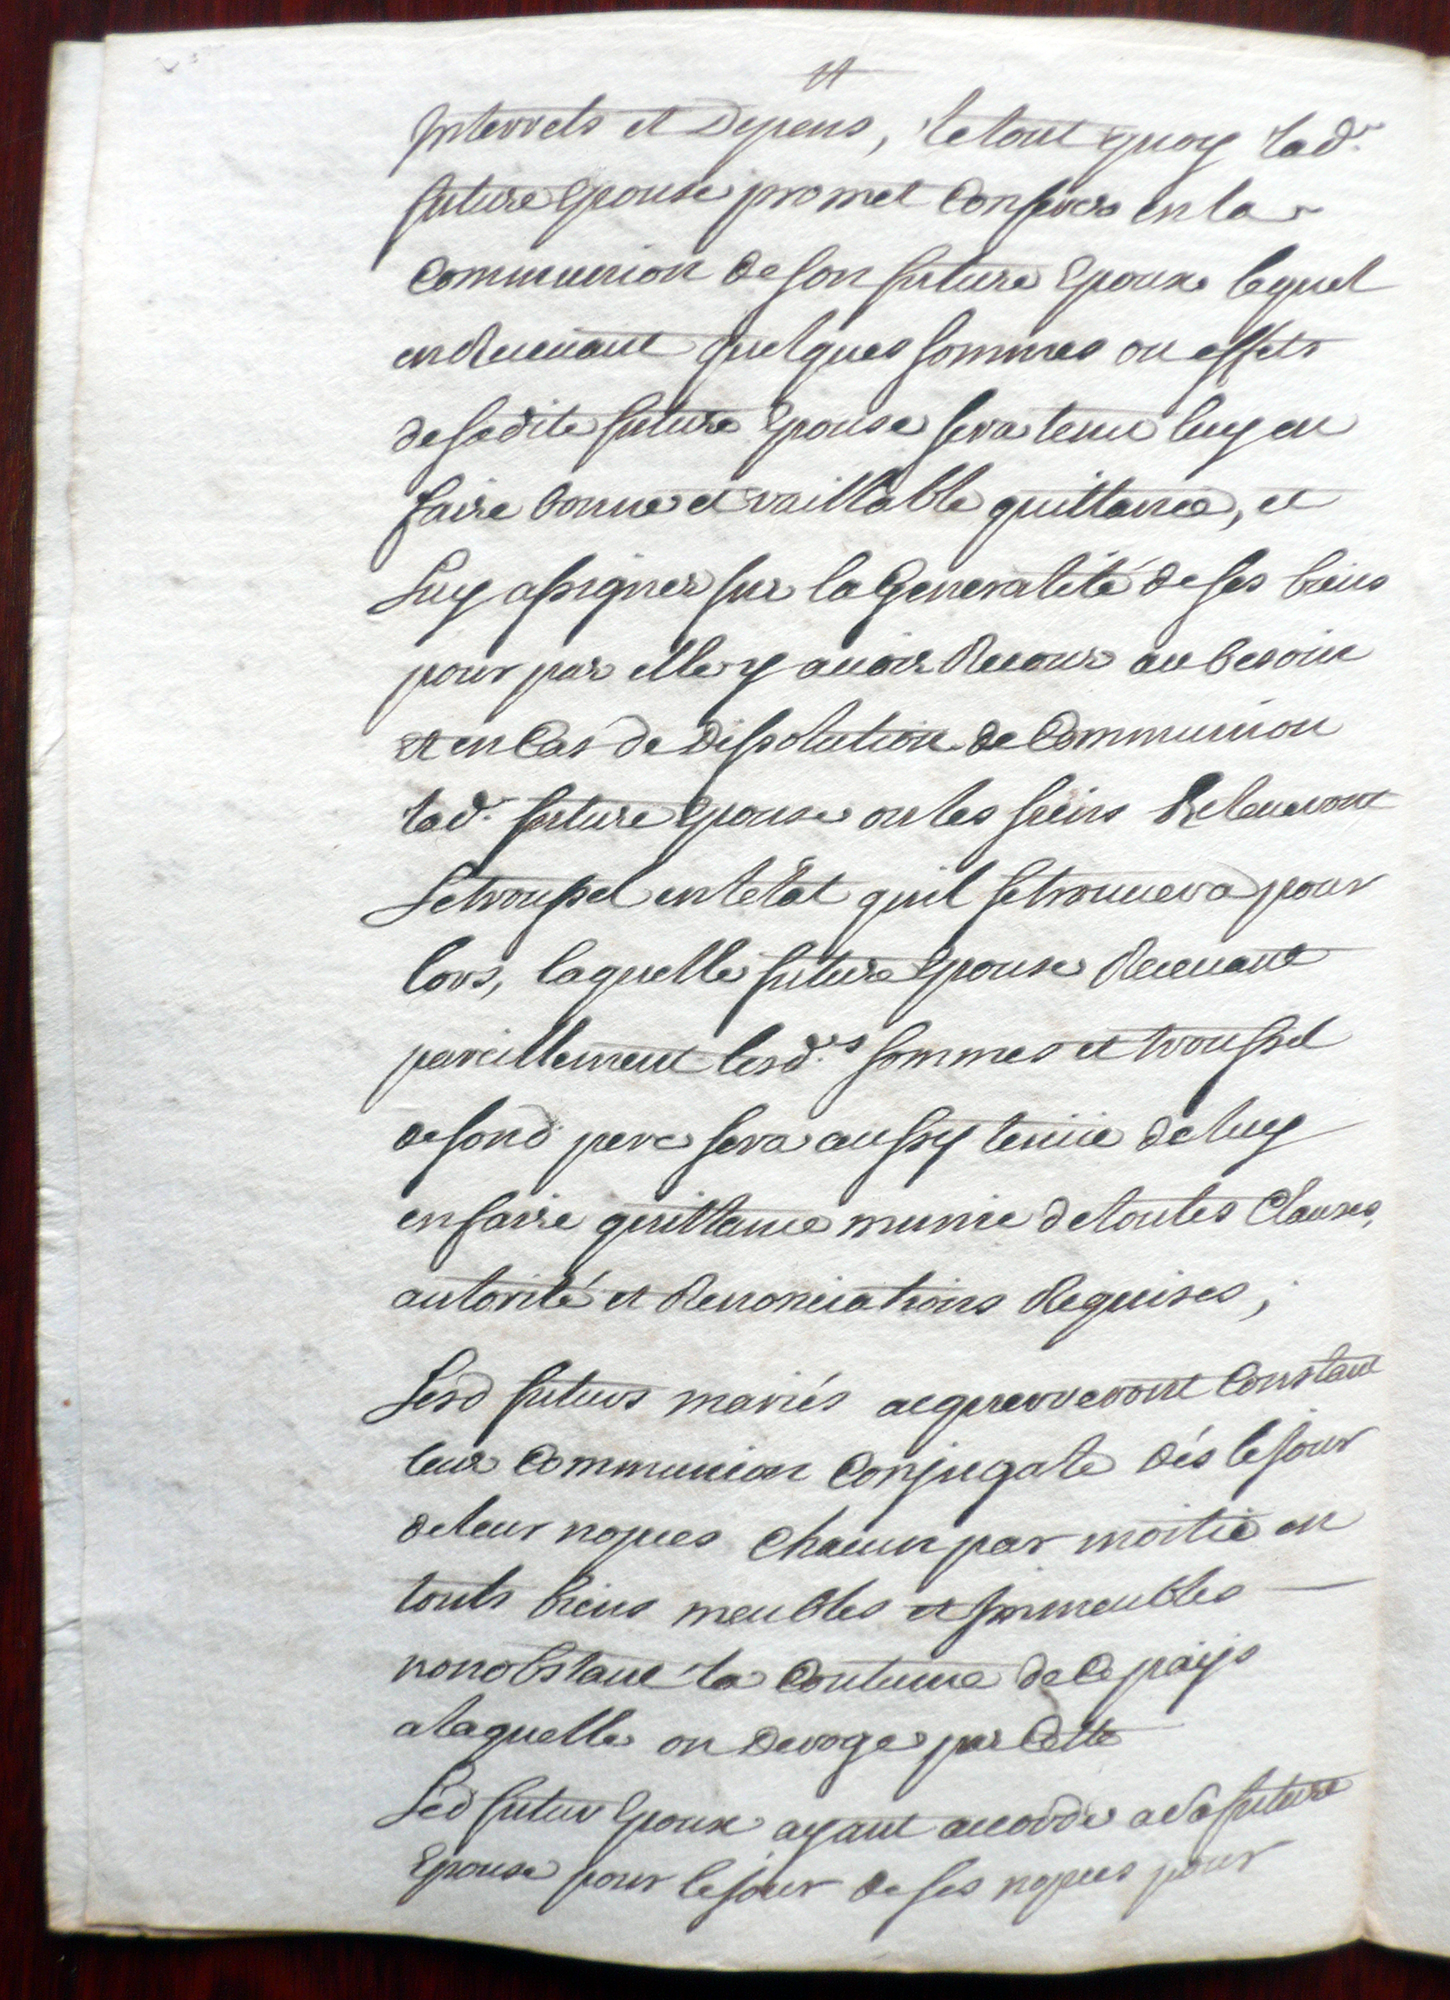 et
Interrets et Depens, le tout quoy lad.e
future Epouse promet Conferer en la
Communion de son future Epoux lequel
en Recevant quelques sommes ou effets
de sadite future Epouse sera tenu luy en
faire bonne et vaillable quittance, et
Luy assigner sur la Generalité de ses biens
pour par elle y avoir Recour au besoin
et en Cas de Dissolution de Communion
lad.e future Epouse ou les siens Releveront
Le troussel en l'etat qu'il se trouvera pour
lors, laquelle future Epouse Recevant
pareillement lesd.es sommes et troussel
de sond pere sera aussy tenüe de luy
en faire quittance munie de toutes Clauses,
autorité et Renonciations Requises;
Lesd futurs mariés acquerreront Constant
leur Communion Conjugale dés le jour
de leur nopces Chacun par moitié en
touts biens meubles et Immeubles
nonobstant la Coutume de Ce païs
a laquelle on Deroge par Cette
Led futur Epoux ayant accordé a Sa future
Epouse pour le jour de ses nopces pour